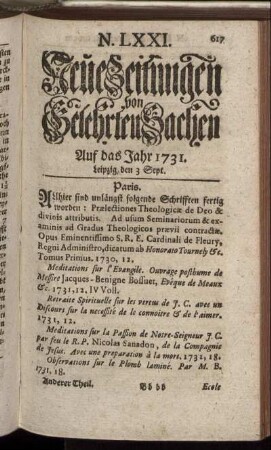 N. LXXI.
617
Neue Zeitungen
von
Gelehrten Sachen
Auf das Jahr 1731.
Leipzig, den 3 Sept.
Paris.
Allhier sind unlängst folgende Schrifften fertig
worden: Prælectiones Theologicæ de Deo &
divinis attributis. Ad usum Seminariorum & ex-
aminis ad Gradus Theologicos prævii contractæ.
Opus Eminentissimo S. R. E. Cardinali de Fleury,
Regni Administro, dicatum ab Honorato Tournely &c.
Tomus Primus. 1730, 12.
Meditations sur l'Evangile. Ouvrage posthume de
Messire Jacques-Benigne Bossuet, Evêque de Meaux
&c. 1731, 12, IV Voll.
Retraite Spirituelle sur les vertus de J. C. avec un
Discours sur la necessité de le connoitre & de l'aimer.
1731, 12.
Meditations sur la Passion de Notre-Seigneur J. C.
par feu le R. P. Nicolas Sanadon, de la Compagnie
de Jesus. Avec une preparation à la mort. 1731, 18.
Observations sur le Plomb laminé. Par M. B.
1731, 18.
Anderer Theil.
Bb bb
Ecole